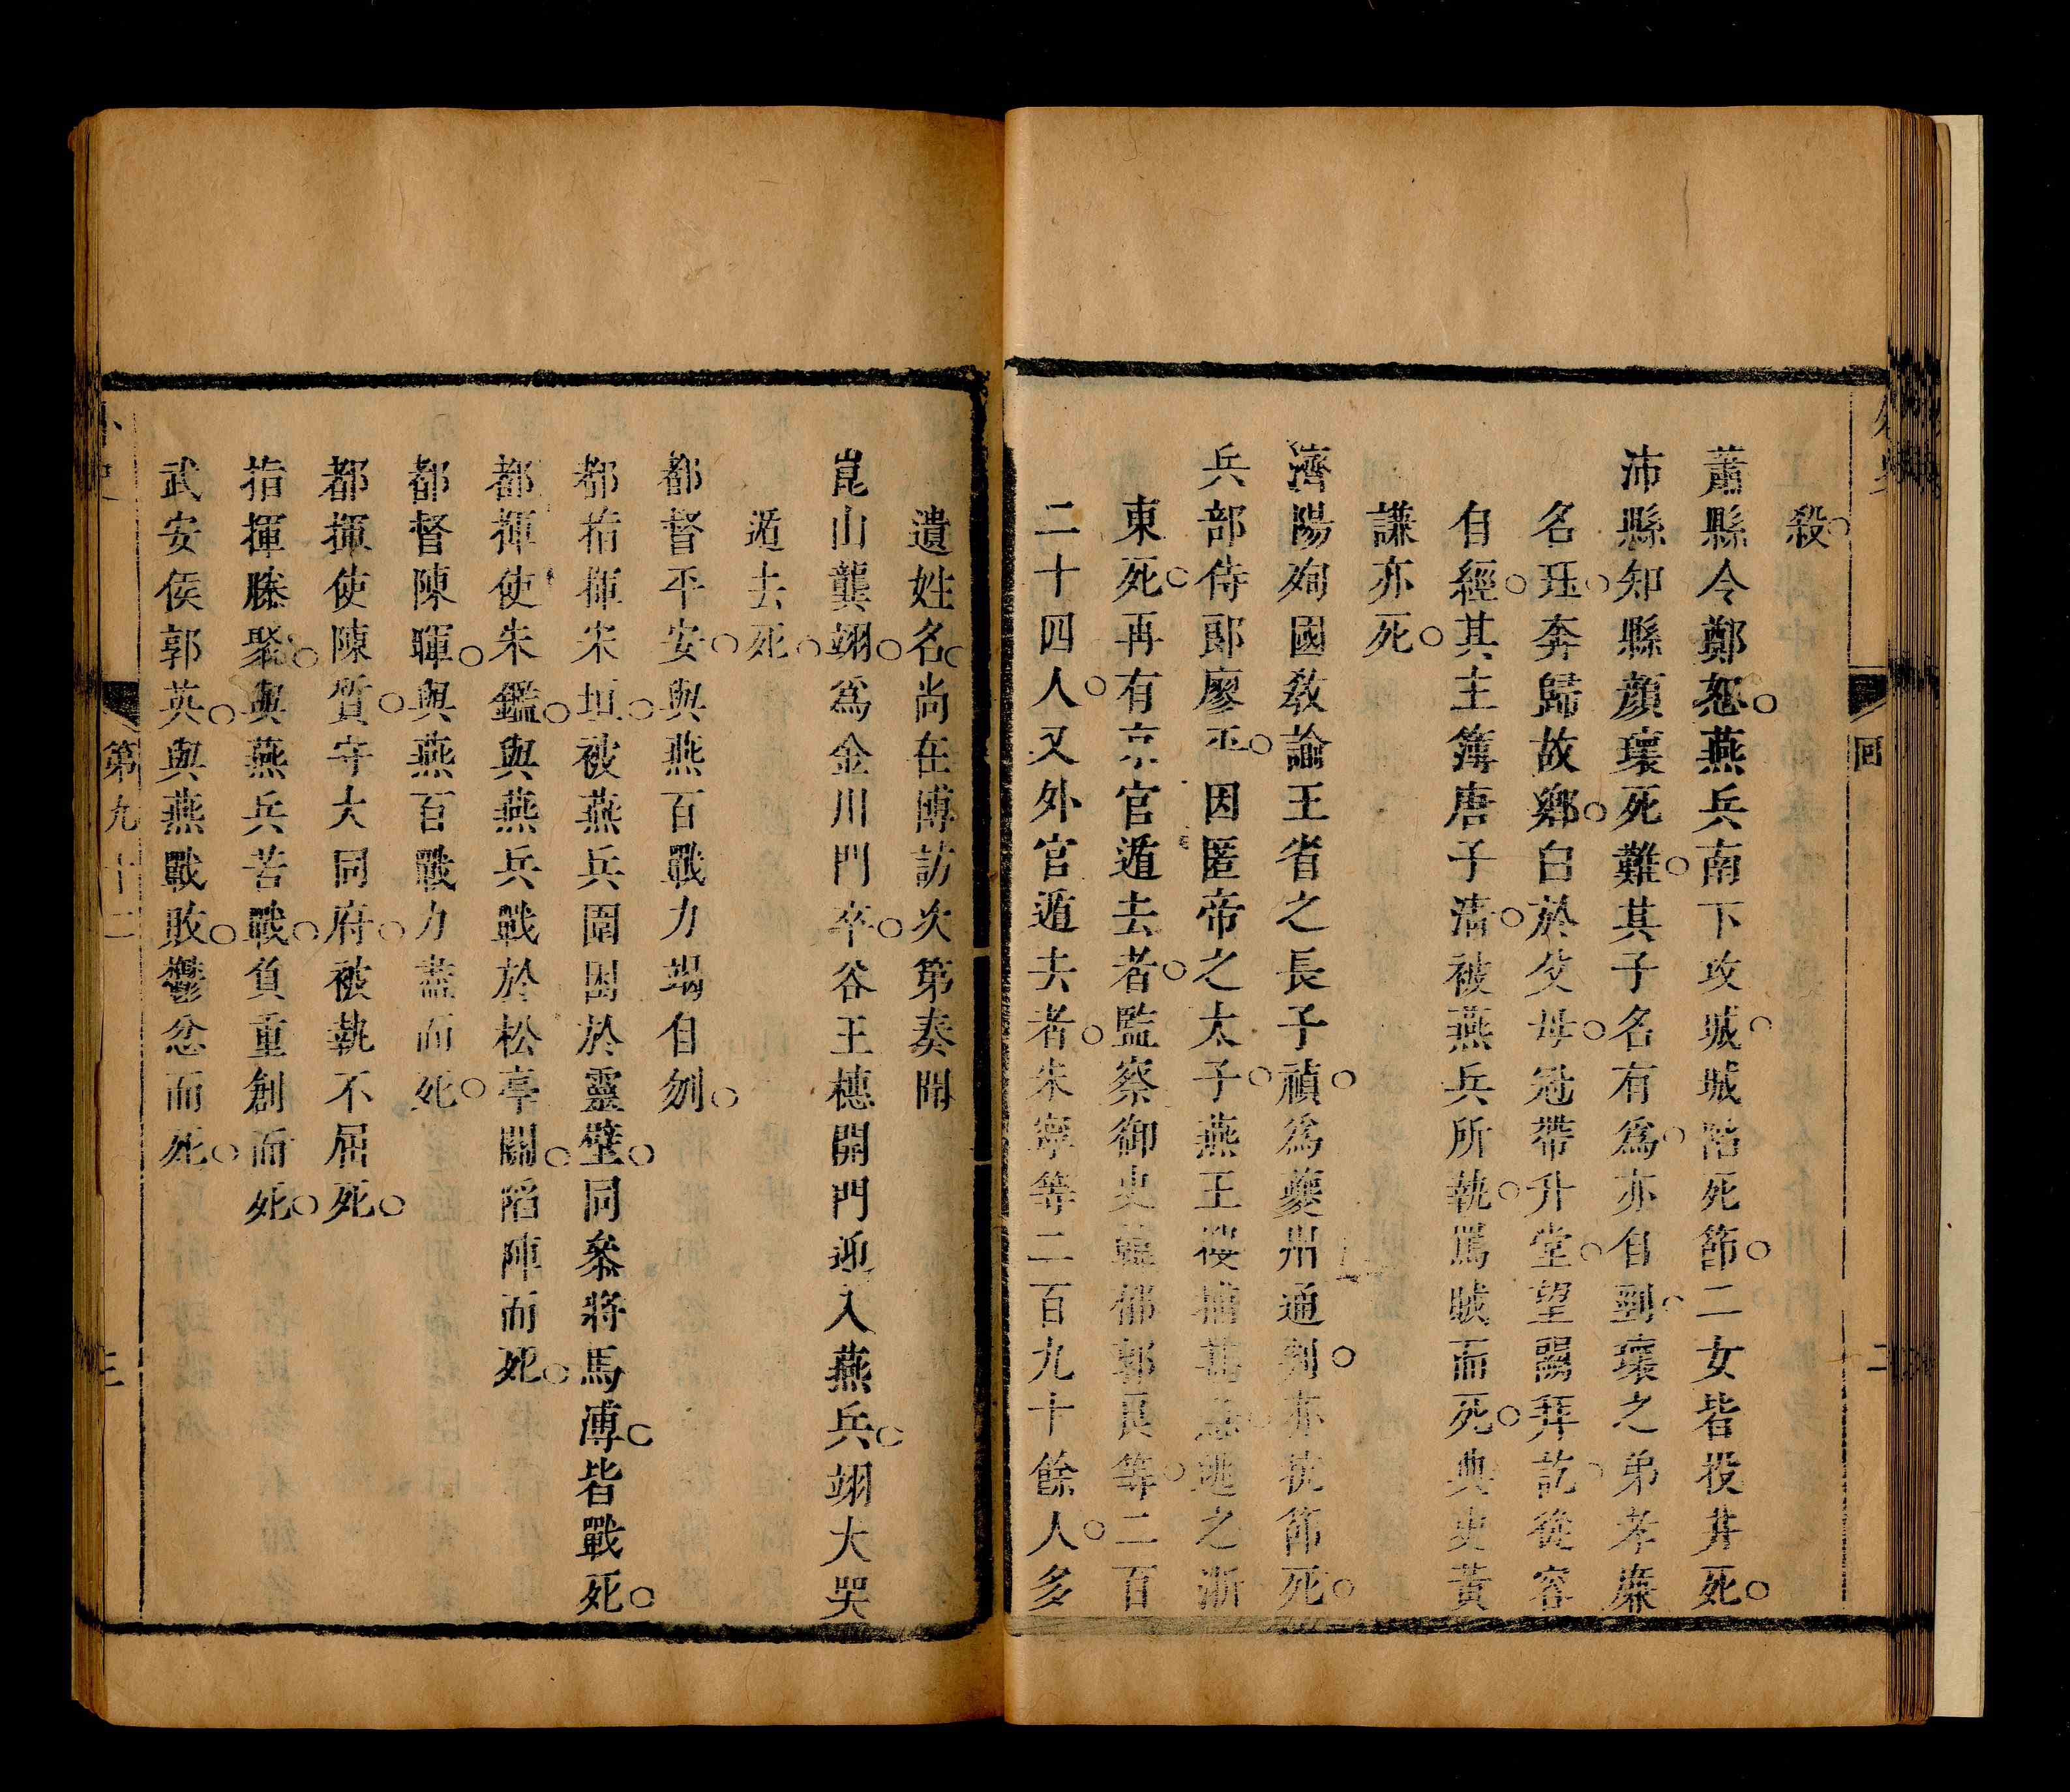 殺
蕭縣令鄭恕燕兵南下攻城城陷死節二女皆投井死
沛縣知縣顔瓌死難其子名有爲亦自剄瓌之弟孝廉
名珏奔歸故鄉白於父母冠帶升堂望闕拜訖從容
自經其主簿唐子清被燕兵所執罵賊而死典史黃
謙亦死
濟陽殉國教諭王省之長子禎爲夔州通判亦抗節死
兵部侍郎廖平因匿帝之太子燕王搜捕甚急逃之浙
東死再有京官遁去者監察御史韓郁郭良等二百
二十四人又外官遁去者朱寧等二百九十餘人多
遺姓名尚在博訪次第奏聞
崑山龔翊爲金川門卒谷王橞開門迎入燕兵翊大哭
遁去死
都督平安與燕百戰力竭自刎
都指揮宋垣被燕兵圍困於靈壁同叅將馬溥皆戰死
都揮使朱鑑與燕兵戰於松亭關滔陣而死
都督陳暉與燕百戰力盡而死
都揮使陳質守大同府被執不屈死
指揮滕聚與燕兵苦戰負重創而死
武安侯郭英與燕戰敗鬱忿而死
第九十二
三